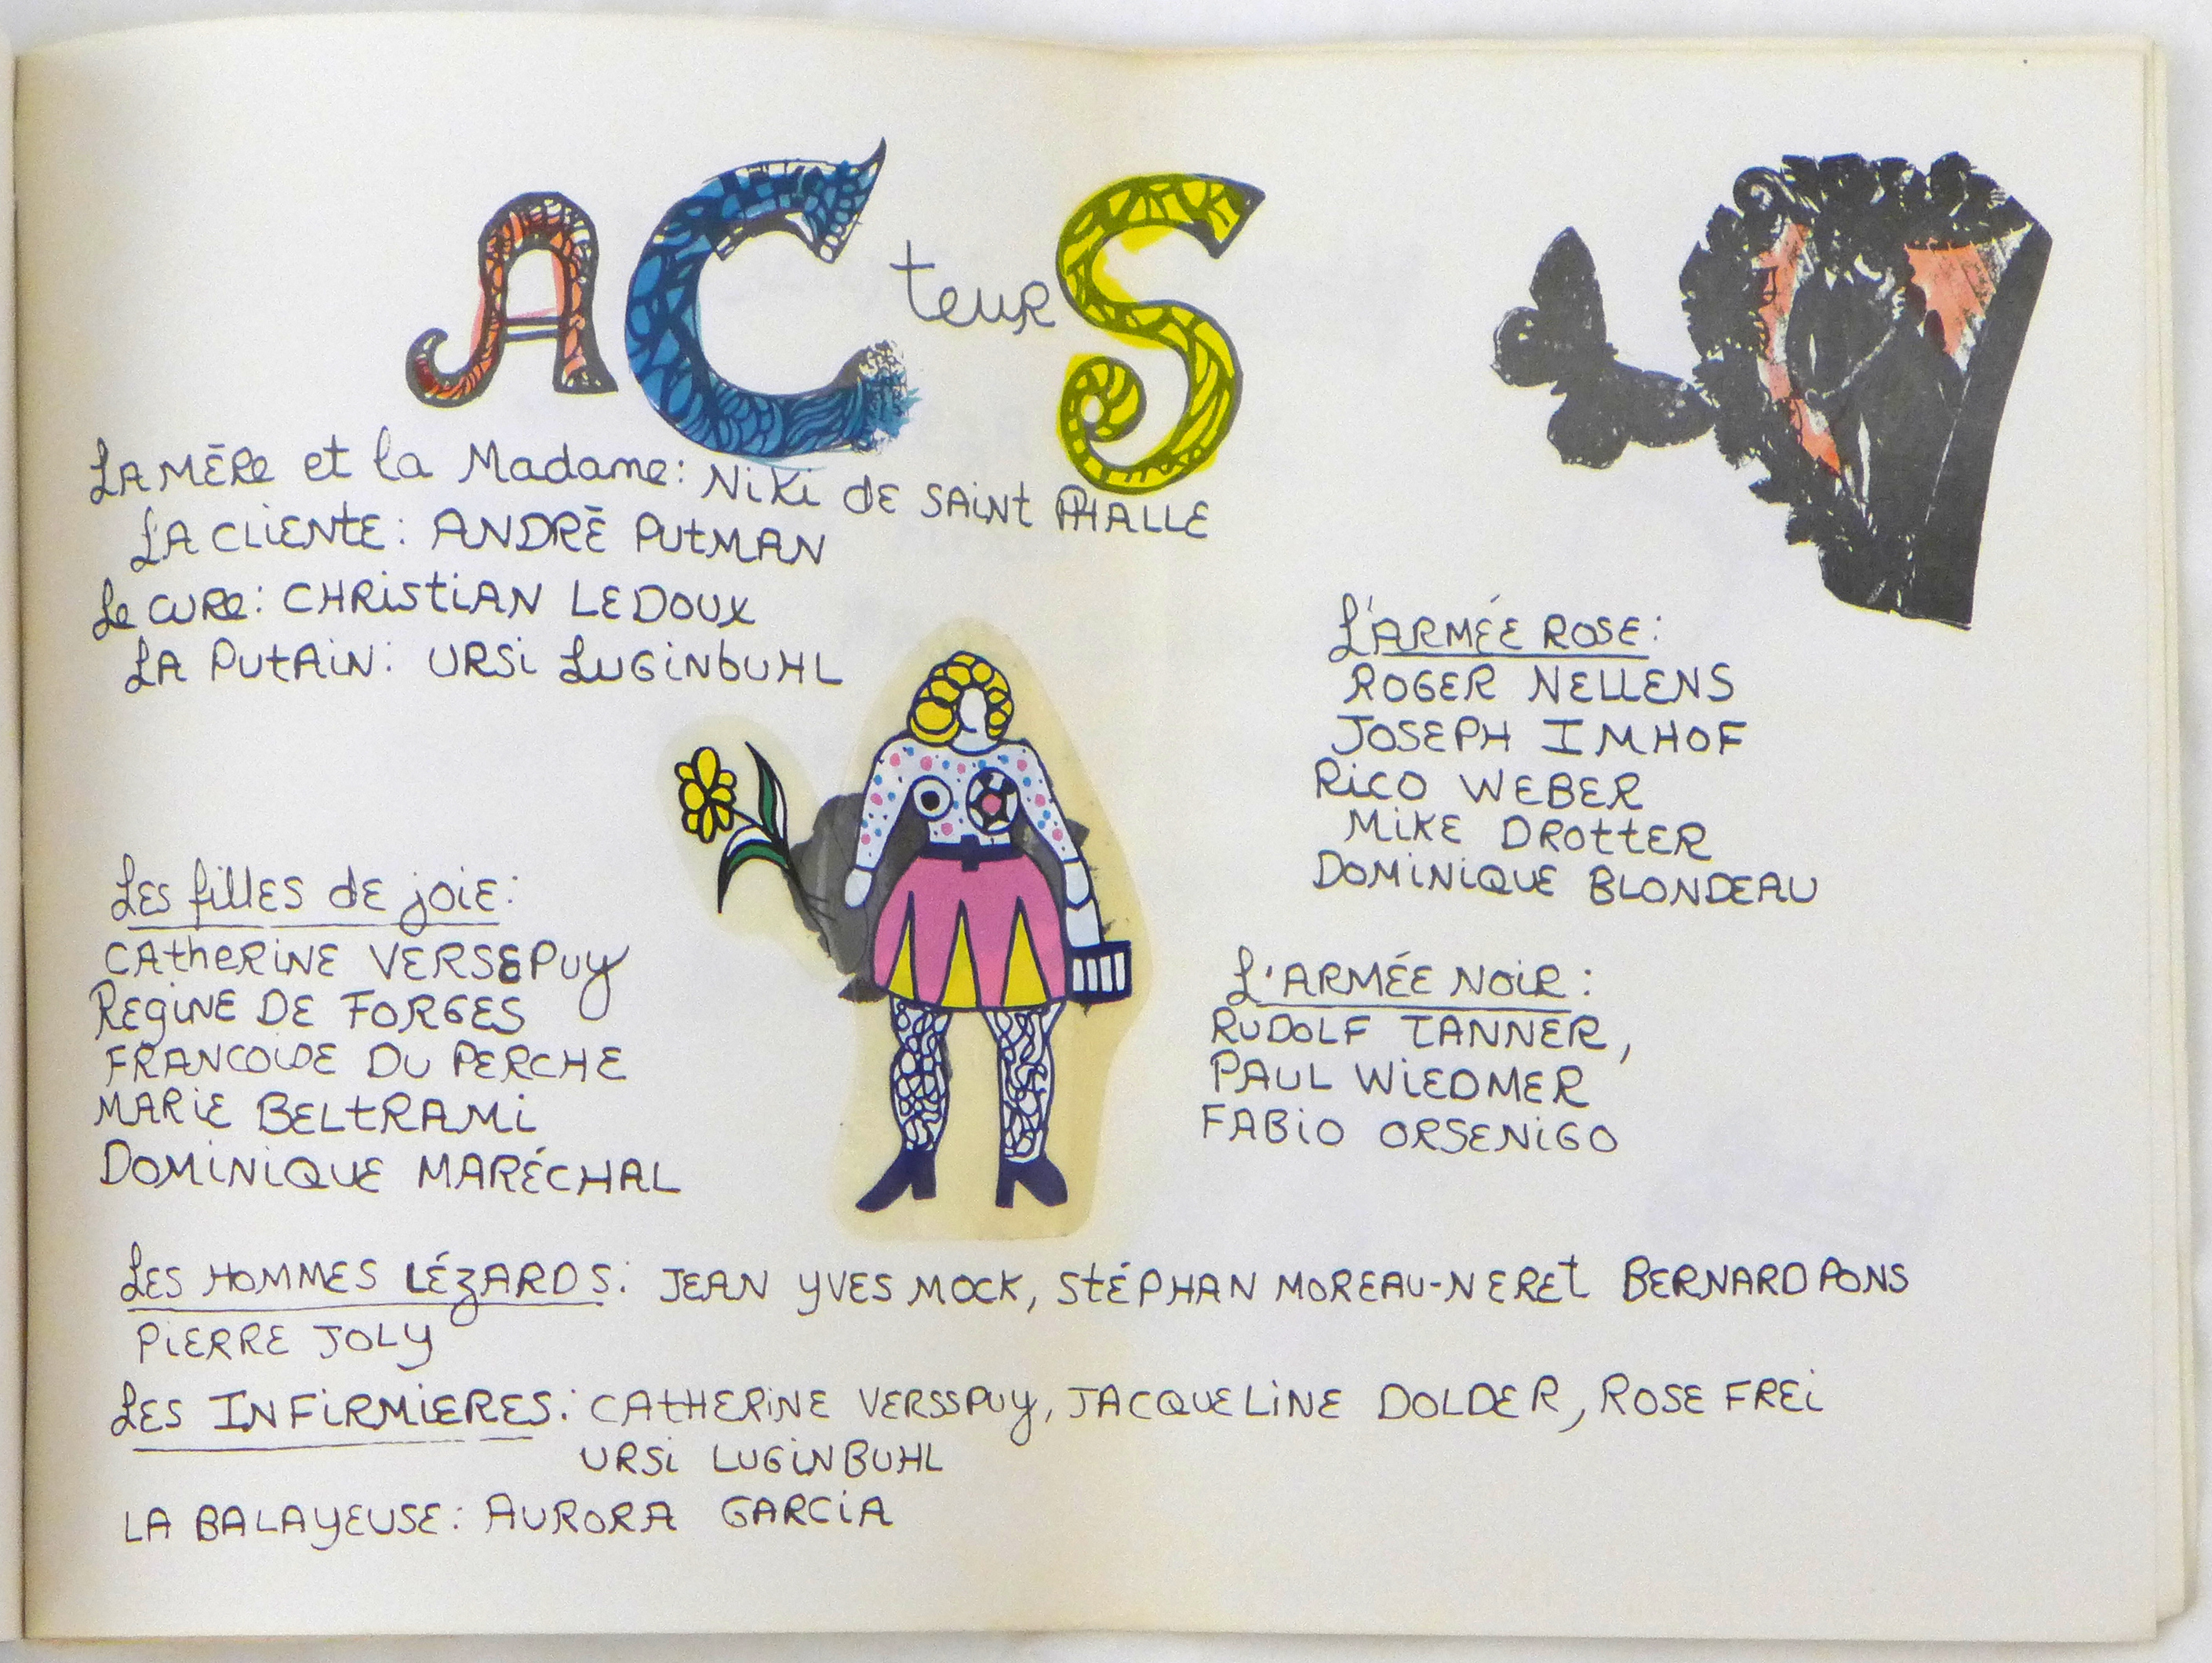 ACteurS
LA MÈRe et la Madame: NiKi dE SAiNt PHALLE
LA CLiENtE: ANDRÉ PUtMAN
Le CURe: CHRiStiAN LEDOUX
LA PUtAiN: URSi LUGiNbUHL
L'ARMÉE ROSE:
ROGER NELLENS
JOSEPH IMHOF
RiCO WEBER
MiKE DROttER
DOMiNiQUE BLONDEAU
LES fillES dE joiE:
CAtheRiNE VERSEPUY
REgiNE DE FORGES
FRANCOiSE DU PERCHE
MARiE BELtRAMi
DOMiNiQUE MARÉCHAL
L'ARMÉE NOiR:
RUDOLF TANNER,
PAUL WiEDMER
FABiO ORSENiGO
LES HOMMES LÉZARDS: JEAN YVES MOCK, StÉPHAN MOREAU-NEREt BERNARD PONS
PiERRE JOLY
LES INFiRMiERES: CAtHERiNE VERSSPUY, JACQUELiNE DOLDER, ROSE FREi
URSi LUGiNBUHL
LA BALAYEUSE: AURORA GARCiA